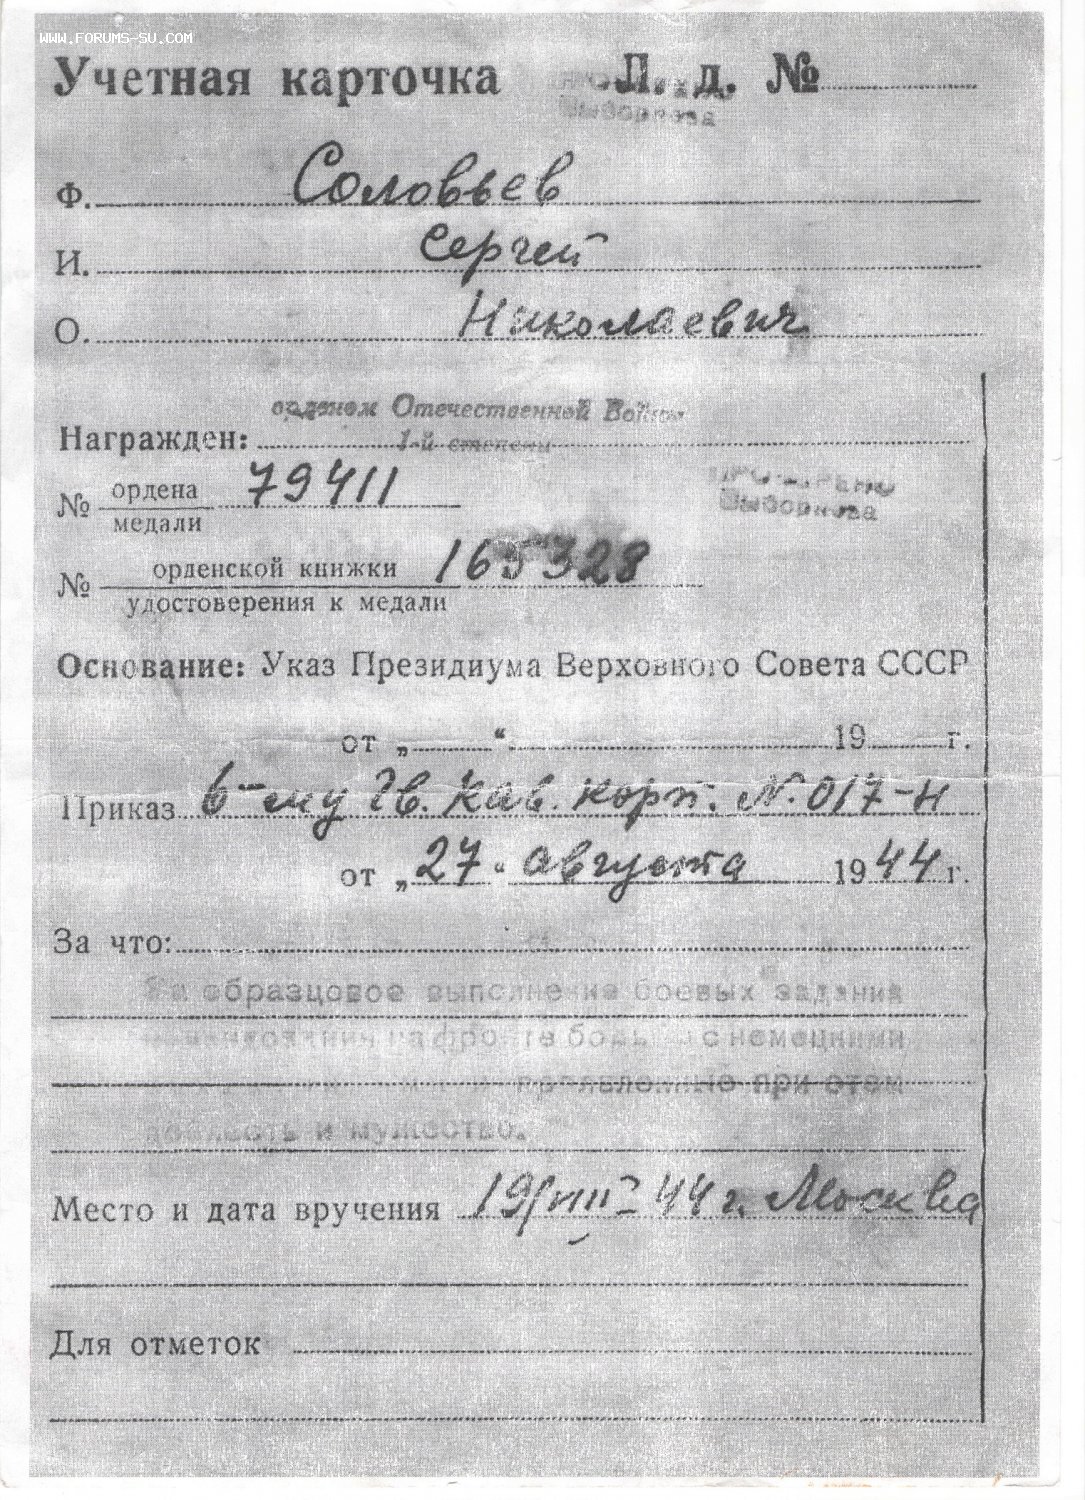 WWW.FORUMS-SU.COM
Учетная карточка Л. д. №
Выборнова
Ф. Соловьев
И. Сергей
О. Николаевич
орденом Отечественной Войны
Награжден: 1-й степени
№ ордена 79411
медали
Выборнова
№ орденской книжки 165328
удостоверения к медали
Основание: Указ Президиума Верховного Совета СССР
от „ “ 19 г.
Приказ 6-му Гв. Кав. Корп. N. 017-н
от „27“ августа 1944 г.
За что:
За образцовое выполнение боевых задания
на фронте борьбы с немецкими
проявленные при этом
доблесть и мужество.
Место и дата вручения 19/VIII-44 г. Москва
Для отметок